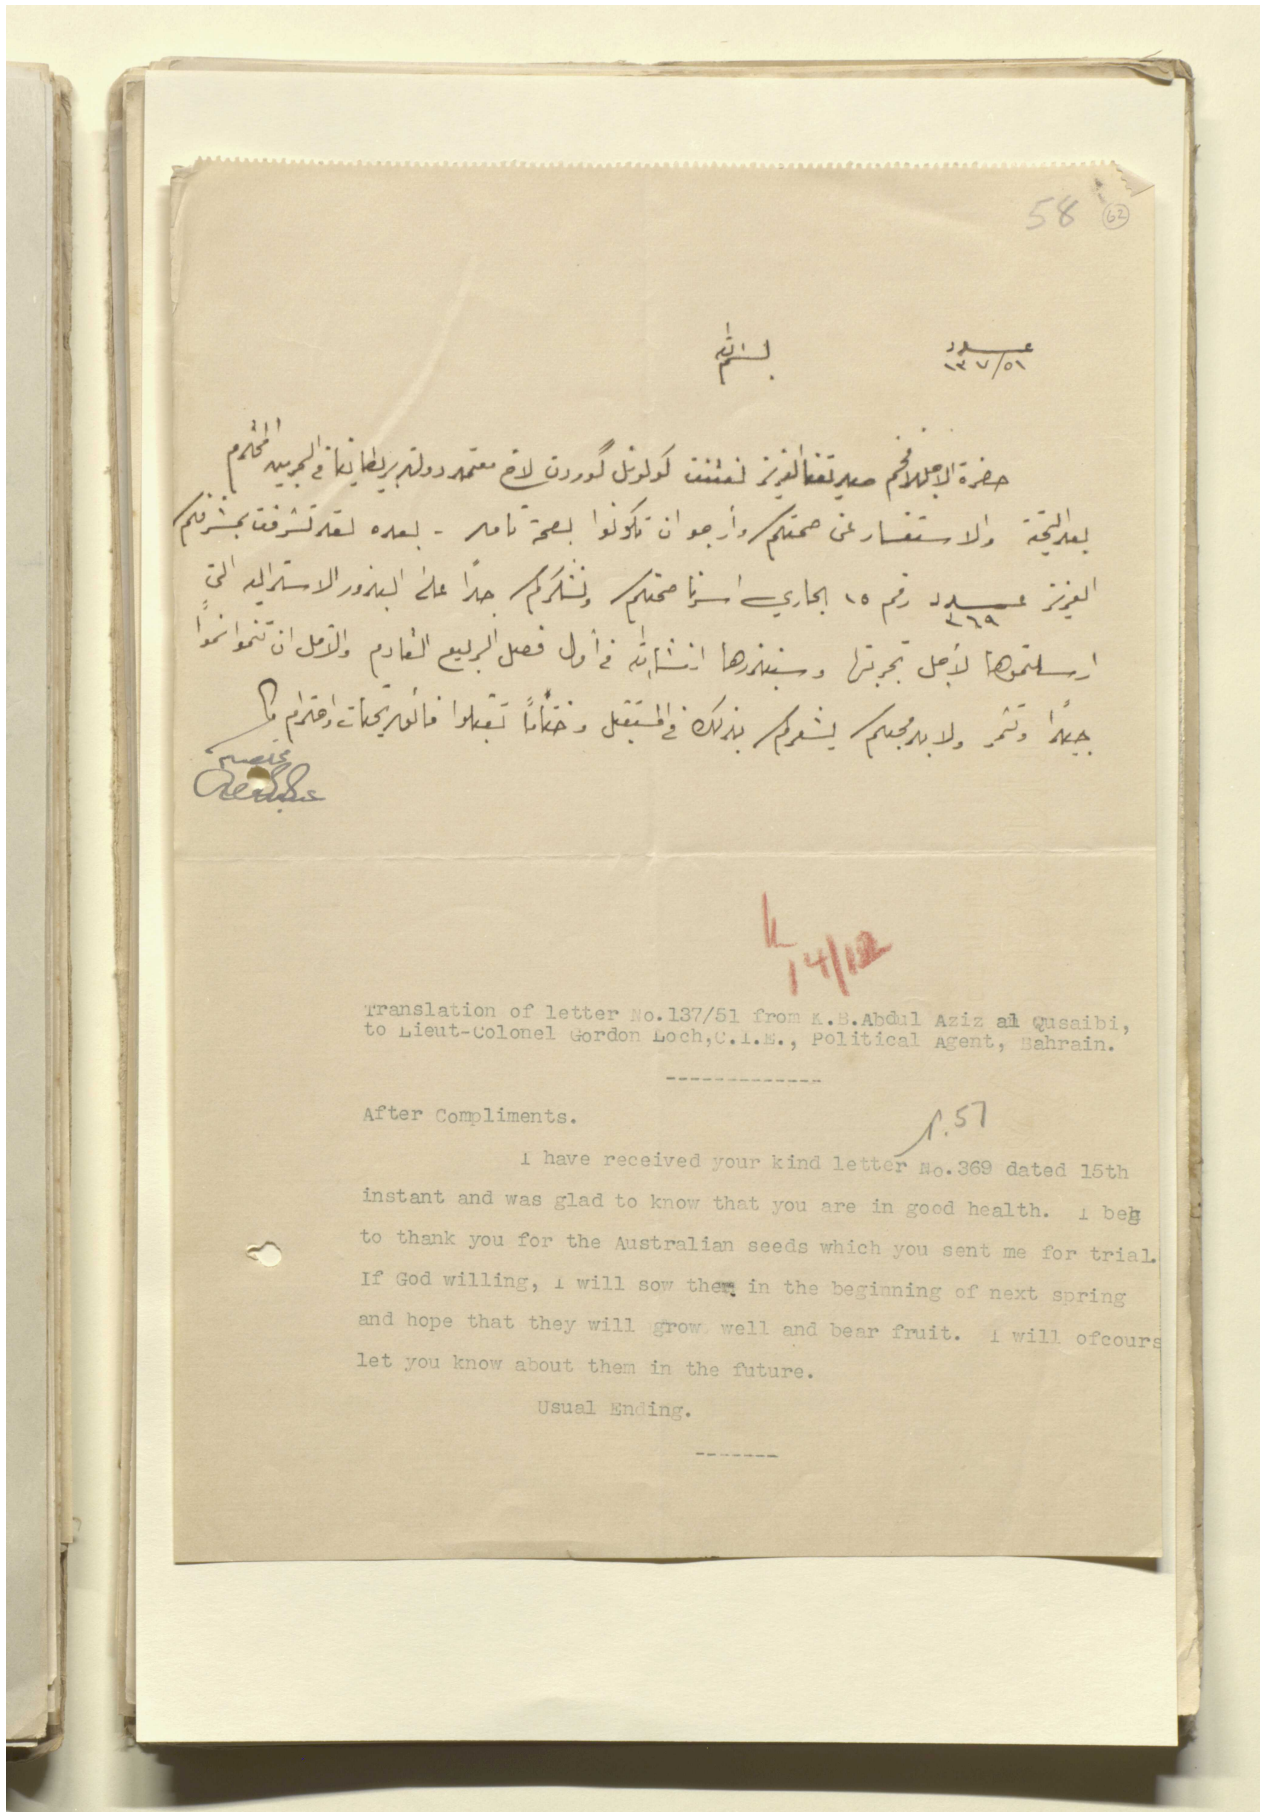 58 62
عدد ١٣٧/٥١
بسم الله
حضرة الاجل الافخم صديقنا العزيز لفتننت كولونل گوردن لاخ معتمد دولة بريطانيا في البحرين المحترم
بعد التحية والاستفسار عن صحتكم وأرجو ان تكونوا بصحة تامه - بعده لقد تشرفت بمشرفكم
العزيز عدد ٣٦٩ رقم ١٥ الجاري اسرنا صحتكم ونشكركم جدًا على البذور الاستراليه التي
ارسلتموها لأجل تجربتها وسنبذرها انشاء الله في أول فصل الربيع القادم والأمل ان تنموا نموًا
جيدًا وتثمر ولا بد محبكم يشعركم بذلك في المستقبل وختامًا تقبلوا فائق تحيات واحترام
مخلصكم
K
14/12
Translation of letter No.137/51 from K.B.Abdul Aziz al Qusaibi,
to Lieut-Colonel Gordon Loch,C.I.E., Political Agent, Bahrain.
-------------
After Compliments.
p.57
I have received your kind letter No.369 dated 15th
instant and was glad to know that you are in good health. I beg
to thank you for the Australian seeds which you sent me for trial.
If God willing, I will sow them in the beginning of next spring
and hope that they will grow well and bear fruit. I will ofcours
let you know about them in the future.
Usual Ending.
-------